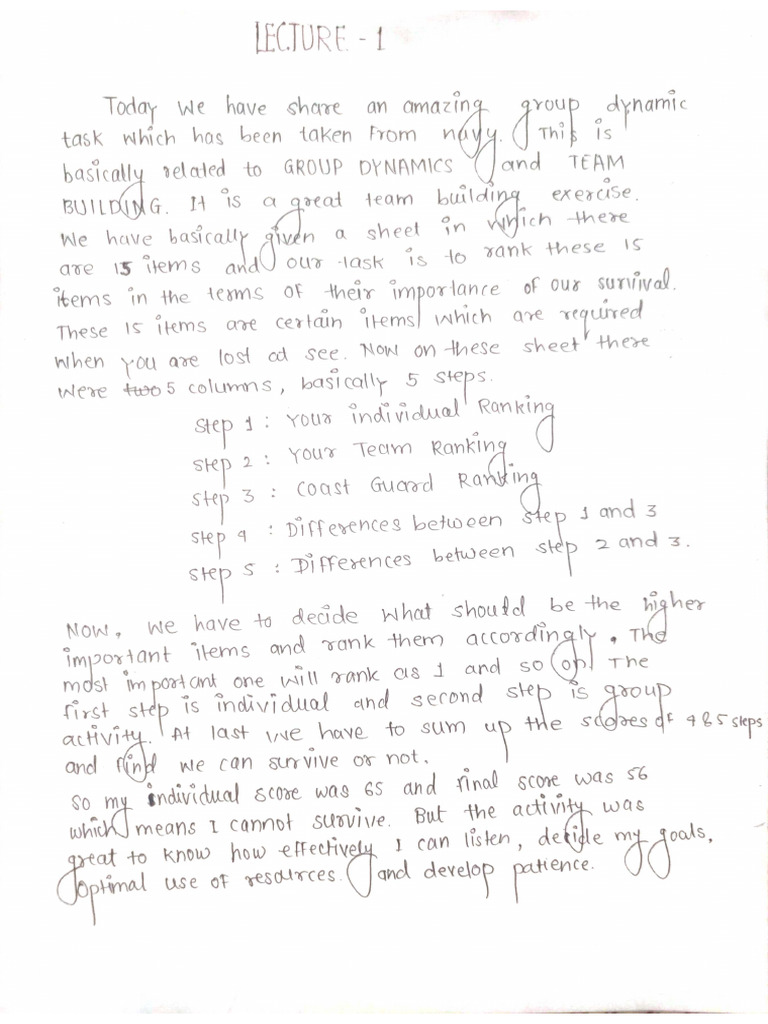 LECTURE - 1
Today we have share an amazing group dynamic
task which has been taken from navy. This is
basically related to GROUP DYNAMICS and TEAM
BUILDING. It is a great team building exercise.
We have basically given a sheet in which there
are 15 items and our task is to rank these 15
items in the terms of their importance of our survival.
These 15 items are certain items which are required
when you are lost at see. Now on these sheet there
were two 5 columns, basically 5 steps.
Step 1 : Your individual Ranking
Step 2 : Your Team Ranking
Step 3 : Coast Guard Ranking
Step 4 : Differences between step 1 and 3
Step 5 : Differences between step 2 and 3.
Now, we have to decide what should be the higher
important items and rank them accordingly. The
most important one will rank as 1 and so on. The
first step is individual and second step is group
activity. At last we have to sum up the scores of 4 & 5 steps
and find we can survive or not.
So my individual score was 65 and final score was 56
which means I cannot survive. But the activity was
great to know how effectively I can listen, decide my goals,
optimal use of resources. and develop patience.